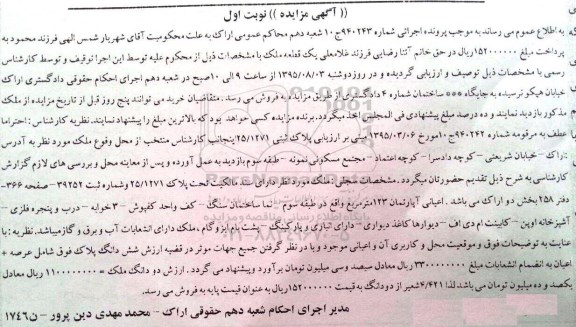 (( آگهی مزایده )) نوبت اول
به اطلاع عموم می رساند به موجب پرونده اجرائی شماره ۹۴۰۲۴۳ج۱۰ شعبه دهم محاکم عمومی اراک به علت محکومیت آقای شهریار شمس الهی فرزند محمود به
پرداخت مبلغ ۱۵۲۰۰۰۰۰۰ ریال در حق خانم آتنا رضایی فرزند غلامعلی یک قطعه ملک با مشخصات ذیل از محکوم علیه توسط این اجرا توقیف و توسط کارشناس
رسمی با مشخصات ذیل توصیف و ارزیابی گردیده و در روز دوشنبه ۱۳۹۵/۰۸/۰۳ از ساعت ۹ الی ۱۰ صبح در شعبه دهم اجرای احکام حقوقی دادگستری اراک
خیابان هپکو نرسیده به جایگاه *** ساختمان شماره ۴ دادگستری از طریق مزایده به فروش می رسد . متقاضیان خرید می توانند پنج روز قبل از تاریخ مزایده از ملک
مذکور بازدید نمایند و ده درصد مبلغ پیشنهادی فی المجلس اخذ میگردد. برنده مزایده کسی خواهد بود که بالاترین مبلغ را پیشنهاد نمایند. نظریه کارشناس : احتراما
عطف به مرقومه شماره ۹۴۰۲۴۲ج۱۰ مورخ ۱۳۹۵/۰۳/۰۶ مبنی بر ارزیابی پلاک ثبتی ۲۵/۱۲۷۱ اینجانب کارشناس منتخب از محل وقوع ملک مورد نظر به آدرس
:اراک - خیابان شریعتی - کوچه دادسرا - کوچه اعتماد - مجتمع مسکونی نمونه - طبقه سوم بازدید به عمل آورده و پس از معاینه محل و بررسی های لازم گزارش
کارشناسی به شرح ذیل تقدیم حضورتان میگردد . مشخصات سجلی : ملک مورد نظر دارای سند مالکیت تحت پلاک ۲۵/۱۲۷۱ و شماره ثبت ۳۹۲۵۲ - صفحه ۳۶۶-
دفتر ۲۵۸ بخش دو اراک می باشد . اعیانی آپارتمان ۱۲۳ مترمربع واقع در طبقه سوم - نما ساختمان سنگ - کف واحد کفپوش - ۳ خوابه - درب و پنجره فلزی -
آشپزخانه اوپن - کابینت ام دی اف - دیوارها کاغذ دیواری - دارای انباری و پارکینگ - پشت بام ایزوگام .ملک دارای انشعابات آب و برق و گاز میباشد. نظریه : با
عنایت به توضیحات فوق و موقعیت محل و کاربری آن و اعیانی موجود و با در نظر گرفتن جمیع جهات موثر در قضیه ارزش شش دانگ پلاک فوق شامل عرصه +
اعیان به انضمام انشعابات مبلغ ۳۳۰۰۰۰۰۰۰۰ ریال معادل سیصد وسی میلیون تومان برآورد و پیشنهاد می گردد . ارزش دو دانگ ملک = ۱۱۰۰۰۰۰۰۰۰ ریال معادل
یکصد و ده میلیون تومان می باشد لذا ۴/۴۲۱ شعیر از دودانگ به قیمت ۱۵۲۰۰۰۰۰۰ ریال به عنوان قیمت پایه به فروش می رسد.
مدیر اجرای احکام شعبه دهم حقوقی اراک - محمد مهدی دین پرور - ن۱۷۴۶